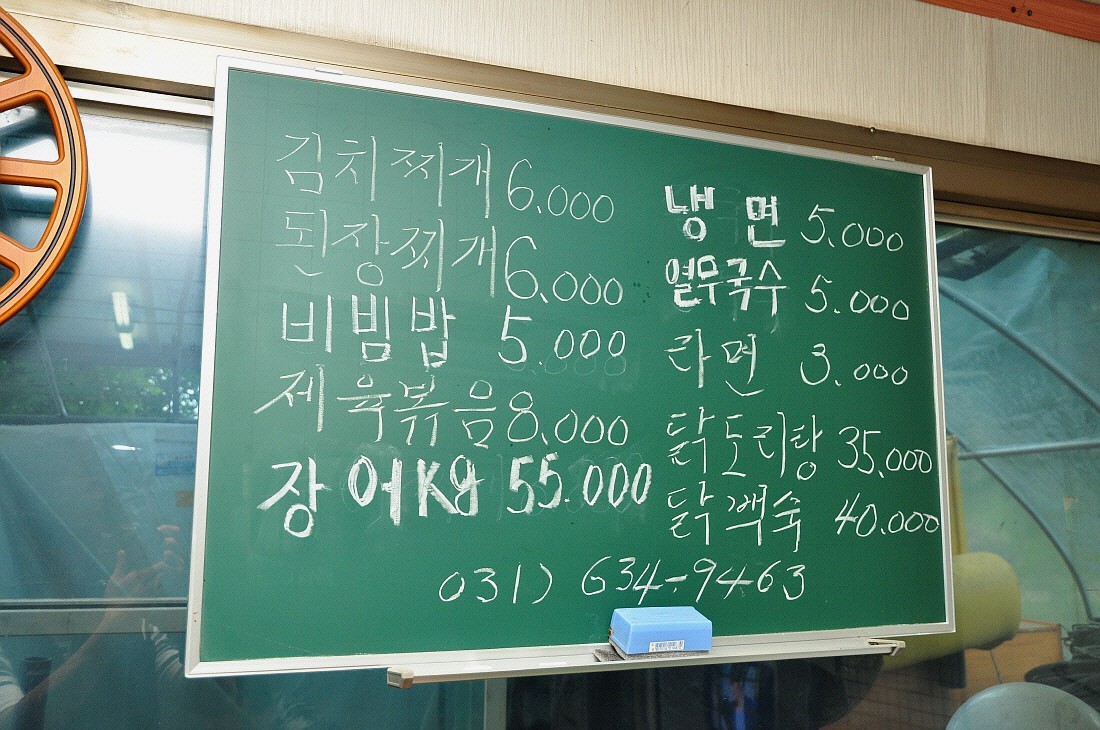 김치찌개 6.000
된장찌개 6.000
비빔밥 5.000
제육볶음 8.000
장어Kg 55.000
냉면 5.000
열무국수 5.000
라면 3.000
닭도리탕 35.000
닭백숙 40.000
031) 634-9463